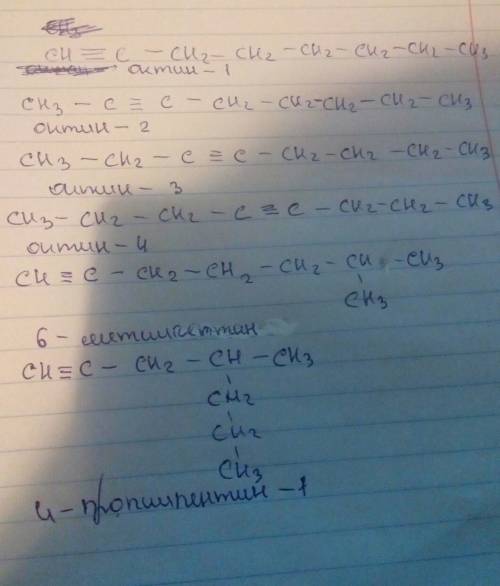 CH ≡ C – CH₂ – CH₂ – CH₂ – CH₂ – CH₂ – CH₃
октин – 1
CH₃ – C ≡ C – CH₂ – CH₂ – CH₂ – CH₂ – CH₃
октин – 2
CH₃ – CH₂ – C ≡ C – CH₂ – CH₂ – CH₂ – CH₃
октин – 3
CH₃ – CH₂ – CH₂ – C ≡ C – CH₂ – CH₂ – CH₃
октин – 4
CH ≡ C – CH₂ – CH₂ – CH₂ – CH – CH₃
CH₃
6 – метилгептин
CH ≡ C – CH₂ – CH – CH₃
CH₂
CH₂
CH₃
4 – пропилпентин – 1